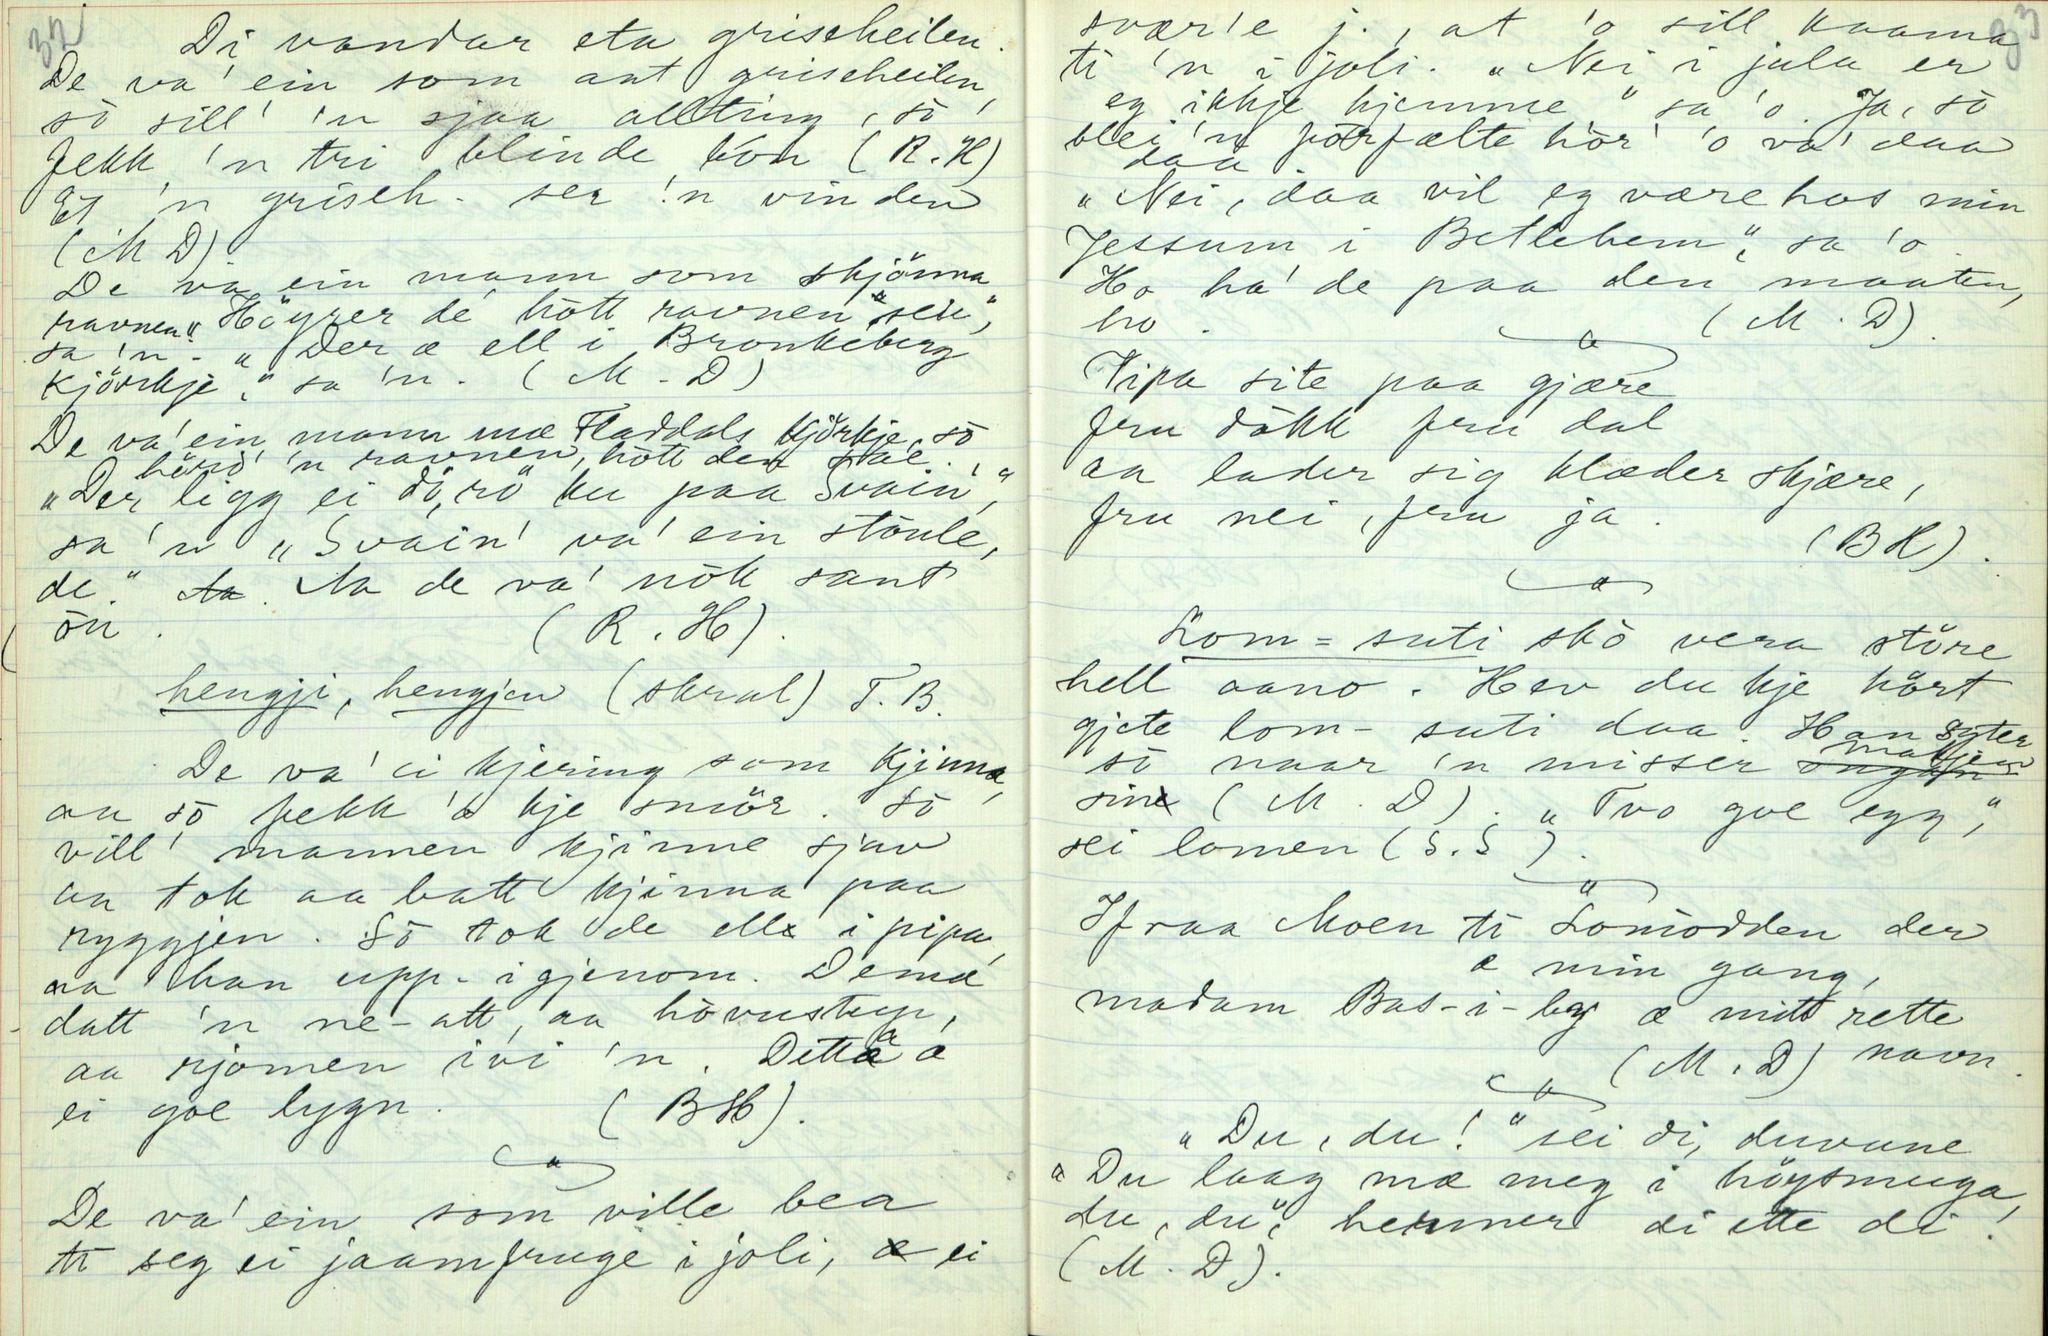 32
Di vandar eta griseheilen.
De va' ein som aat griseheilen,
sò sill' 'n sjaa allting, sò
fekk 'n tri blinde kón (R.H)
Et 'n griseh. ser 'n vinden
(M D)
De va ein mann som skjönna
ravnen. "Höyrer de hòtt ravnen sei",
sa 'n. "Der æ ell i Brunkeberg
kjörkje", sa 'n. (M. D)
De va' ein mann mæ Fladdals kjörkje, sò
höyrd' 'n ravnen, hòtt den sae.
"Der ligg ei dö, rö ku paa Svain'",
sa 'n "Svain' va' ein stöule,
de." Aa de va' nòk sant
òu. (R. H).
hengji, hengjen (skral) T. B.
De va' ei kjering som kjinna,
aa sò fekk 'o kje smör. Sò
vill' mannen kjinne sjav
aa tok aa batt kjinna paa
ryggjen. Sò tok de ell i pipa,
aa han upp-igjenom. Demæ
datt 'n ne-att, aa hövustup,
aa rjomen ivi 'n. Detta æ
ei goe lygn. (BH).
De va' ein som ville bea
ti seg ei jaamfruge i joli, ei
33
svær'e j., at 'o sill kaama
ti 'n i joli. "Nei i jula er
eg ikkje hjemme" sa 'o. Ja, sò
blei 'n forfælte hòr' 'o va' daa
daa
"Nei, daa vil eg være hos min
Jessum i Betlehem", sa 'o
Ho ha' de paa den maaten,
ho. (M. D).
Pipa site paa gjære
fru dökk fru dal
aa lader sig klæder skjære,
fru nei, fru ja.
(BH).
Lom-suti skò vera störe
hell aano. Hev du kje hört
gjete lom-suti daa. Han syter
sò naar 'n misser makjen
sin (M. D). "Tvo goe egg",
sei lomen (S.S).
Ifraa Moen ti Lomodden der
æ min gang,
madam Bas-i-hey æ mitt rette
(M. D) navn.
"Du, du!" sei di, duvune
"Du laag mæ meg i höysmuga,
du, du", hermer di ette di.
(M. D).